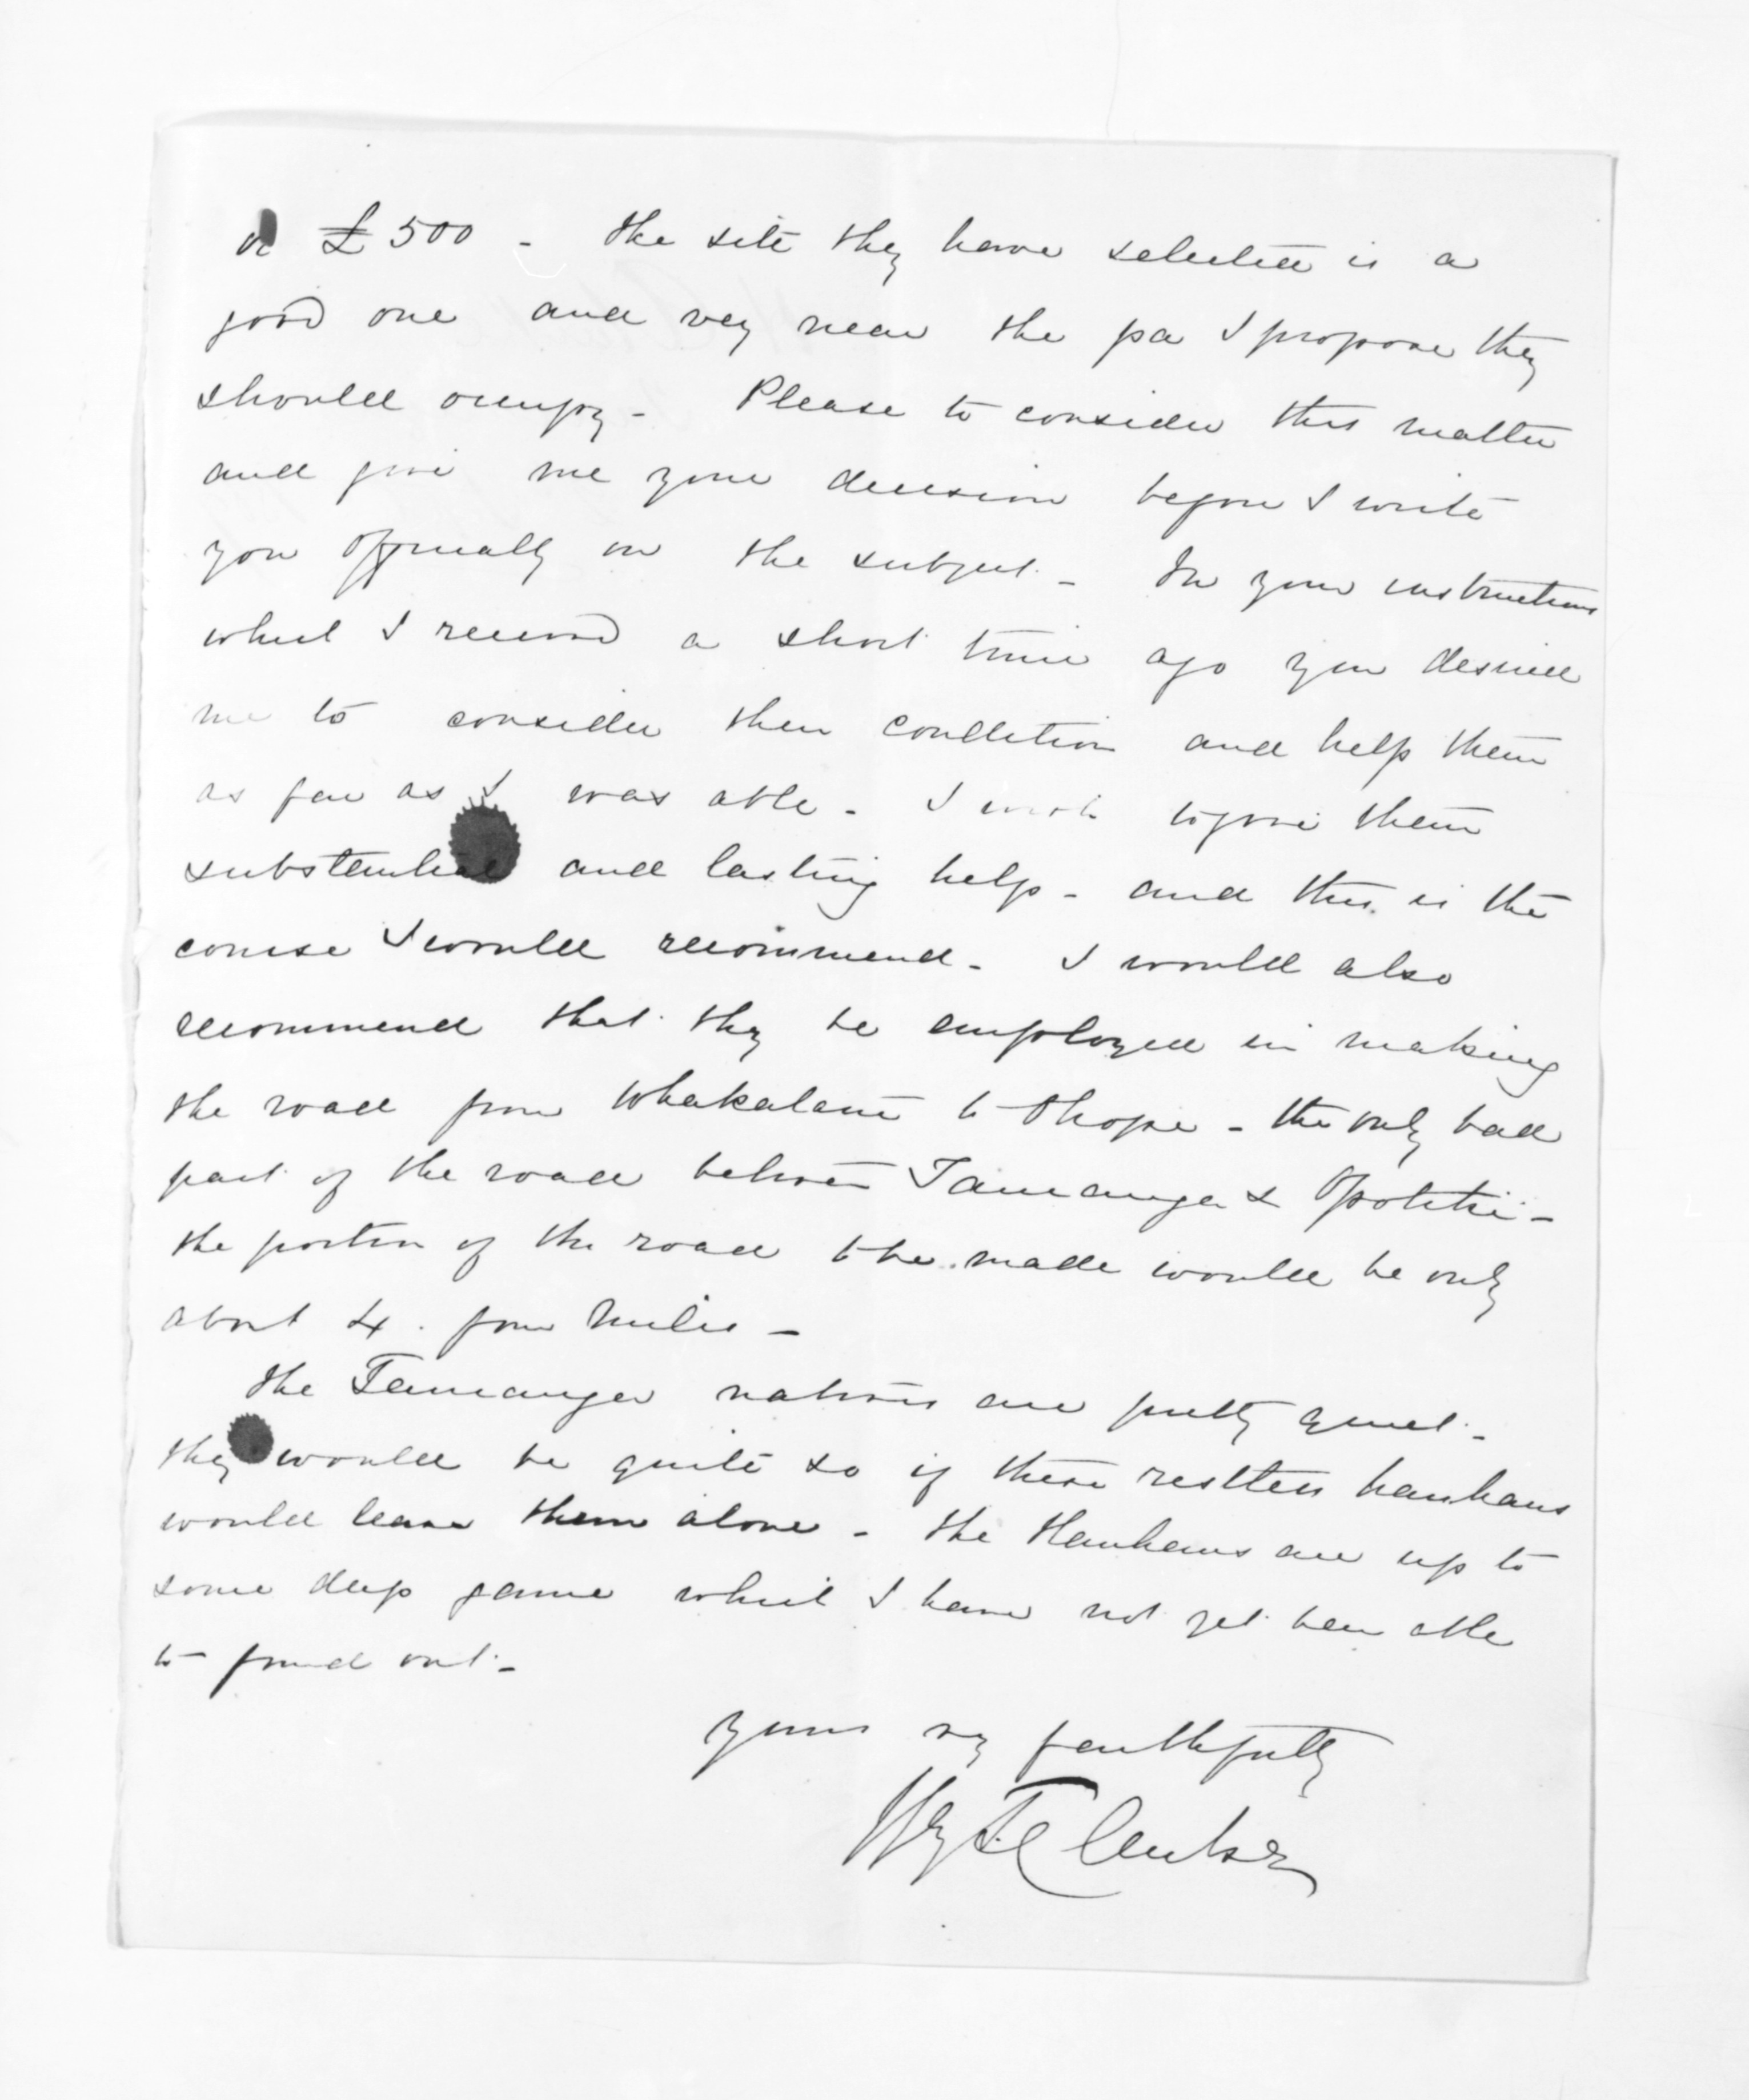 or £500 - The site they have selected is a
good one and very near the pa I propose they
should occupy - Please to consider this matter
and give me your decision before I write
you officially on the subject - In your instructions
which I received a short time ago you desired
me to consider their condition and help them
as far as I was able - I wish to give them
substantial and lasting help - and this is the
course I would recommend - I would also
recommend that they be employed in making
the road from Whakatane to Ohope - the only bad
part of the road between Tauranga & Opotiki -
the portion of the road to be made would be only
about 4. four miles -
The Tauranga natives are pretty quiet -
they would be quite so if these restless hauhaus
would leave them alone - The Hauhaus are up to
some deep game which I have not yet been able
to found out -
Yours vy faithfully
Hy T Clarke